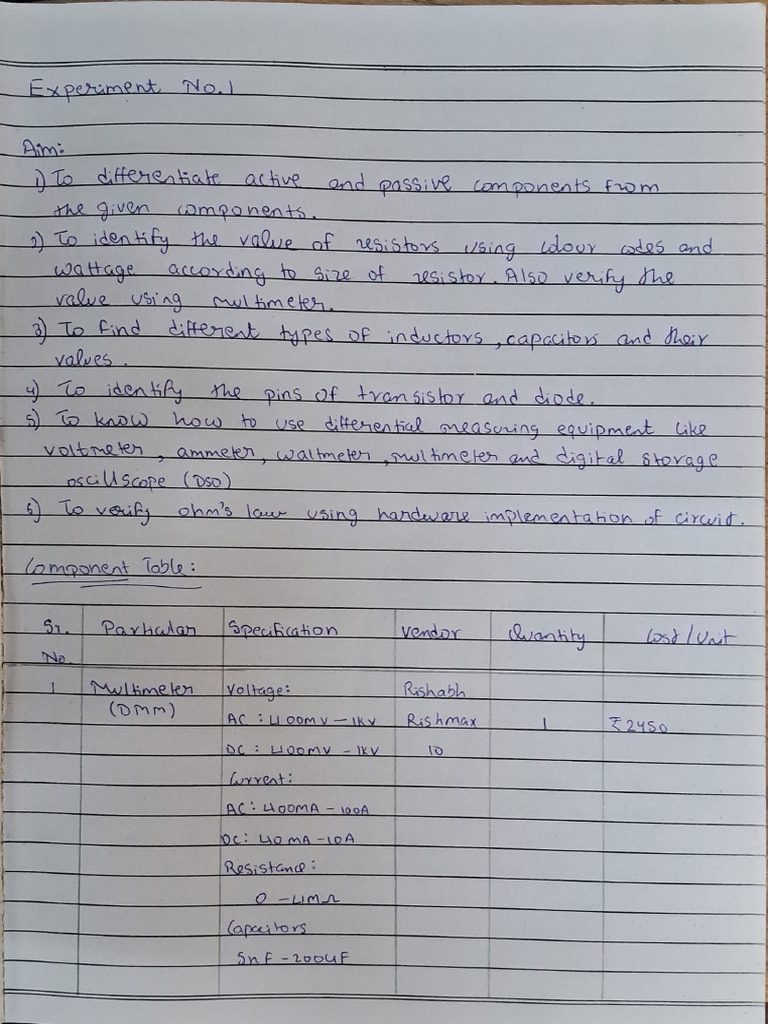 Experiment No.1
Aim:
1) To differentiate active and passive components from
the given components.
2) To identify the value of resistors using colour codes and
wattage according to size of resistor. Also verify the
value using multimeter.
3) To find different types of inductors, capacitors and their
values.
4) To identify the pins of transistor and diode.
5) To know how to use differential measuring equipment like
voltmeter, ammeter, waltmeter, multimeter and digital storage
oscillscope (DSO)
6) To verify ohm's law using hardware implementation of circuit.
Component Table:
Sr. Particular Specification Vendor Quantity Cost/Unit
No.
1 Multimeter Voltage: Rishabh
(DMM) AC: 400mV-1KV Rishmax 1 ₹2450
DC: 400mV-1KV 10
Current:
AC: 400MA-100A
DC: 40MA-10A
Resistance:
0-4MΩ
Capacitors
5nF-200uF